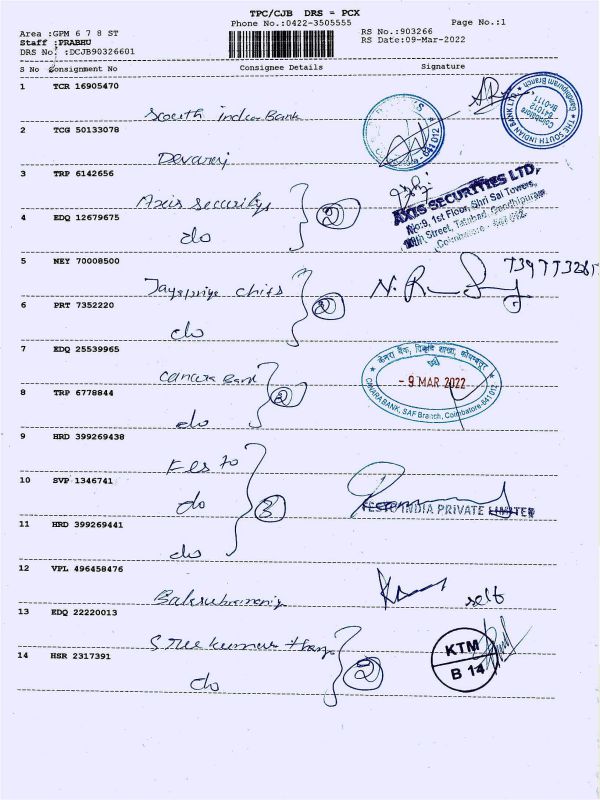 TPC/CJB DRS = PCX
Phone No.:0422-3505555
Page No.:1
Area :GPM 6 7 8 ST
RS No.:903266
Staff :PRABHU
RS Date:09-Mar-2022
DRS No. :DCJB90326601
S No Consignment No Consignee Details Signature
1 TCR 16905470
South Indian Bank
THE SOUTH INDIAN BANK LTD.
Gandhipuram Branch
Coimbatore
641012
Br-0111
641 012
2 TCG 50133078
Devaraj
3 TRP 6142656
Axis Securitys
2
AXIS SECURITIES LTD,
No:9, 1st Floor, Shri Sai Towers,
Street, Tatabad, Gandhipuram
Coimbatore - 641 012.
4 EDQ 12679675
do
5 NEY 70008500
Jayapriya chits
2
6 PRT 7352220
do
7 EDQ 25539965
Canara Bank
2
केनरा बैंक,
शाखा, कोयम्बत्तूर
- 9 MAR 2022
CANARA BANK, SAF Branch, Coimbatore-641 012
8 TRP 6778844
do
9 HRD 399269438
Festo
10 SVP 1346741
do
3
FESTO INDIA PRIVATE LIMITED
11 HRD 399269441
do
12 VPL 496458476
Balsubramaniy
self
13 EDQ 22220013
Sree kumar
2
KTM
B 14
14 HSR 2317391
do